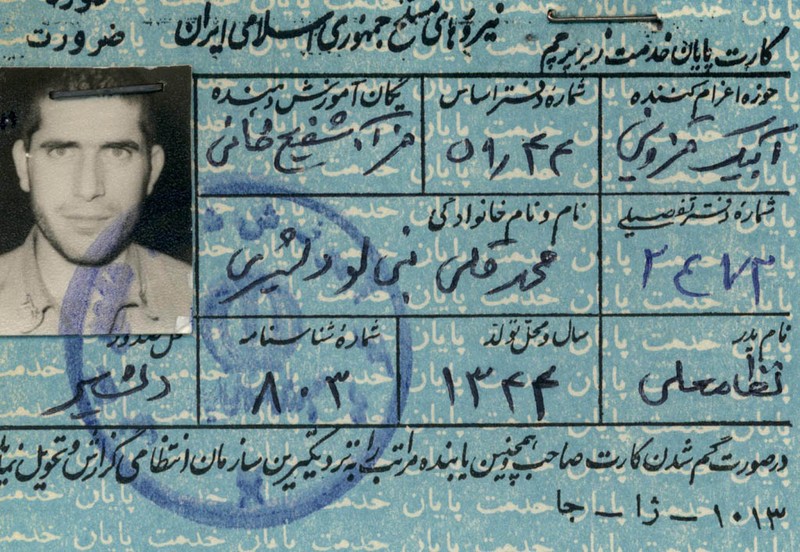 نیروهای مسلح جمهوری اسلامی ایران
ضرورت
کارت پایان خدمت زیر پرچم
حوزه اعزام کننده
شماره دفتر اساس
یگان آموزش دهنده
آبیک قزوین
۵۹٫۴۴
شماره دفتر تفصیلی
نام و نام خانوادگی
۲۴۷۳
محمد قلی نبی لو دلشیری
نام پدر
سال و محل تولد
شماره شناسنامه
محل صدور
نظامعلی
۱۳۴۴
۸۰۳
درصورت گم شدن کارت صاحب و همچنین یابنده مراتب را به نزدیکترین سازمان انتظامی گزارش و تحویل
۱۰۱۳ – ژا – جا